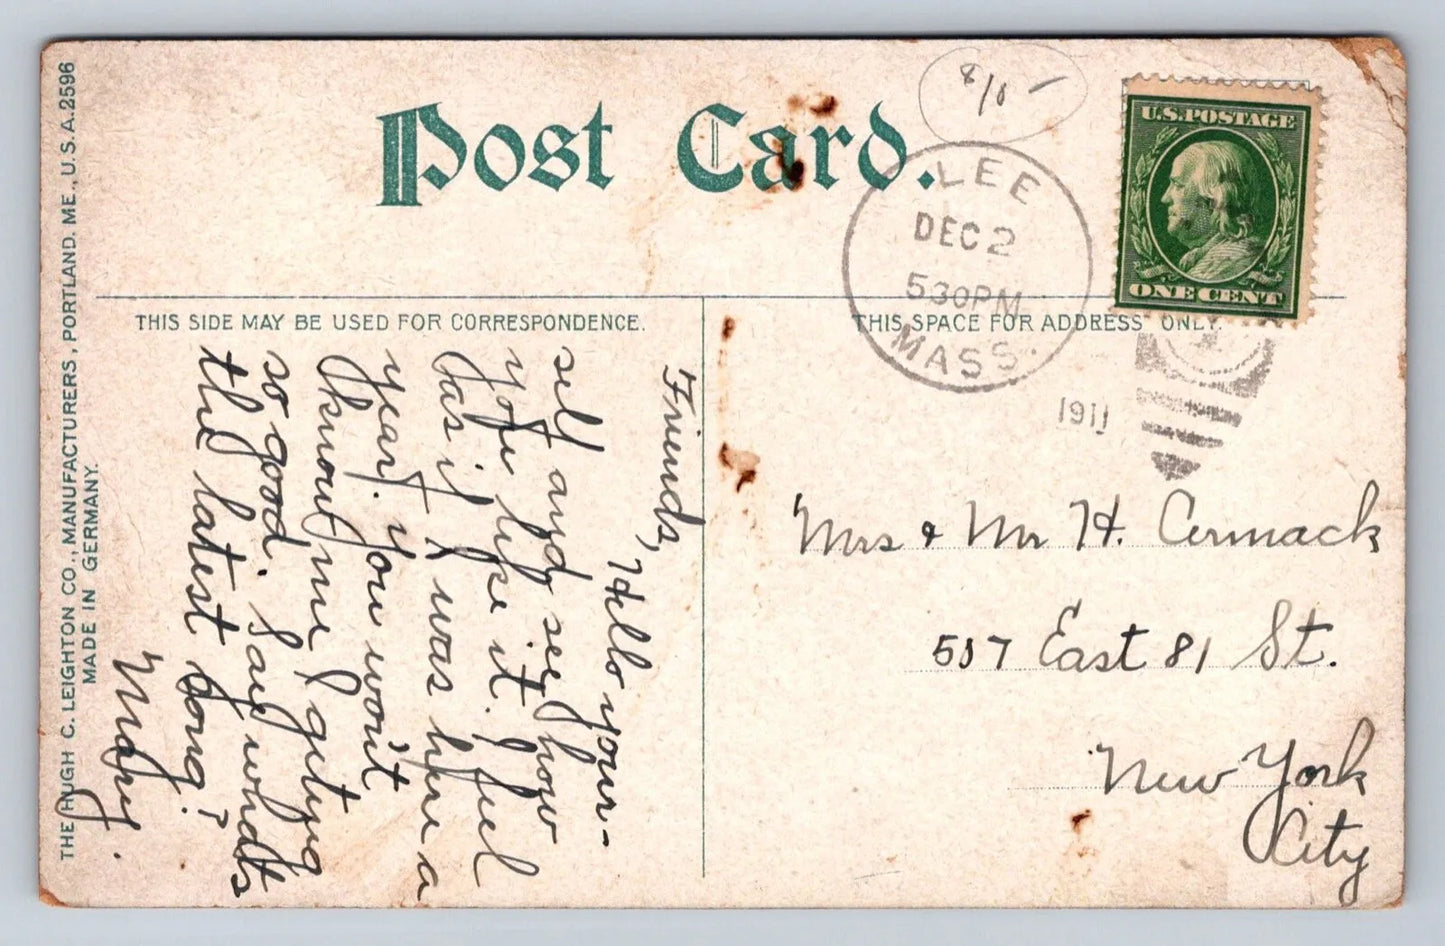 Post Card.
8/10 -
U.S.POSTAGE
ONE CENT
LEE
DEC 2
530PM
MASS.
1911
THIS SIDE MAY BE USED FOR CORRESPONDENCE.
THIS SPACE FOR ADDRESS ONLY.
Friends,
Hello your-
self and see how
you like it. I feel
as if I was here a
year. You won't
know me I geting
so good. Say whats
the latest song?
Mary.
Mrs & Mr H. Cermack
507 East 81 St.
New York
City
THE HUGH C. LEIGHTON CO., MANUFACTURERS, PORTLAND. ME., U.S.A. 2596
MADE IN GERMANY.